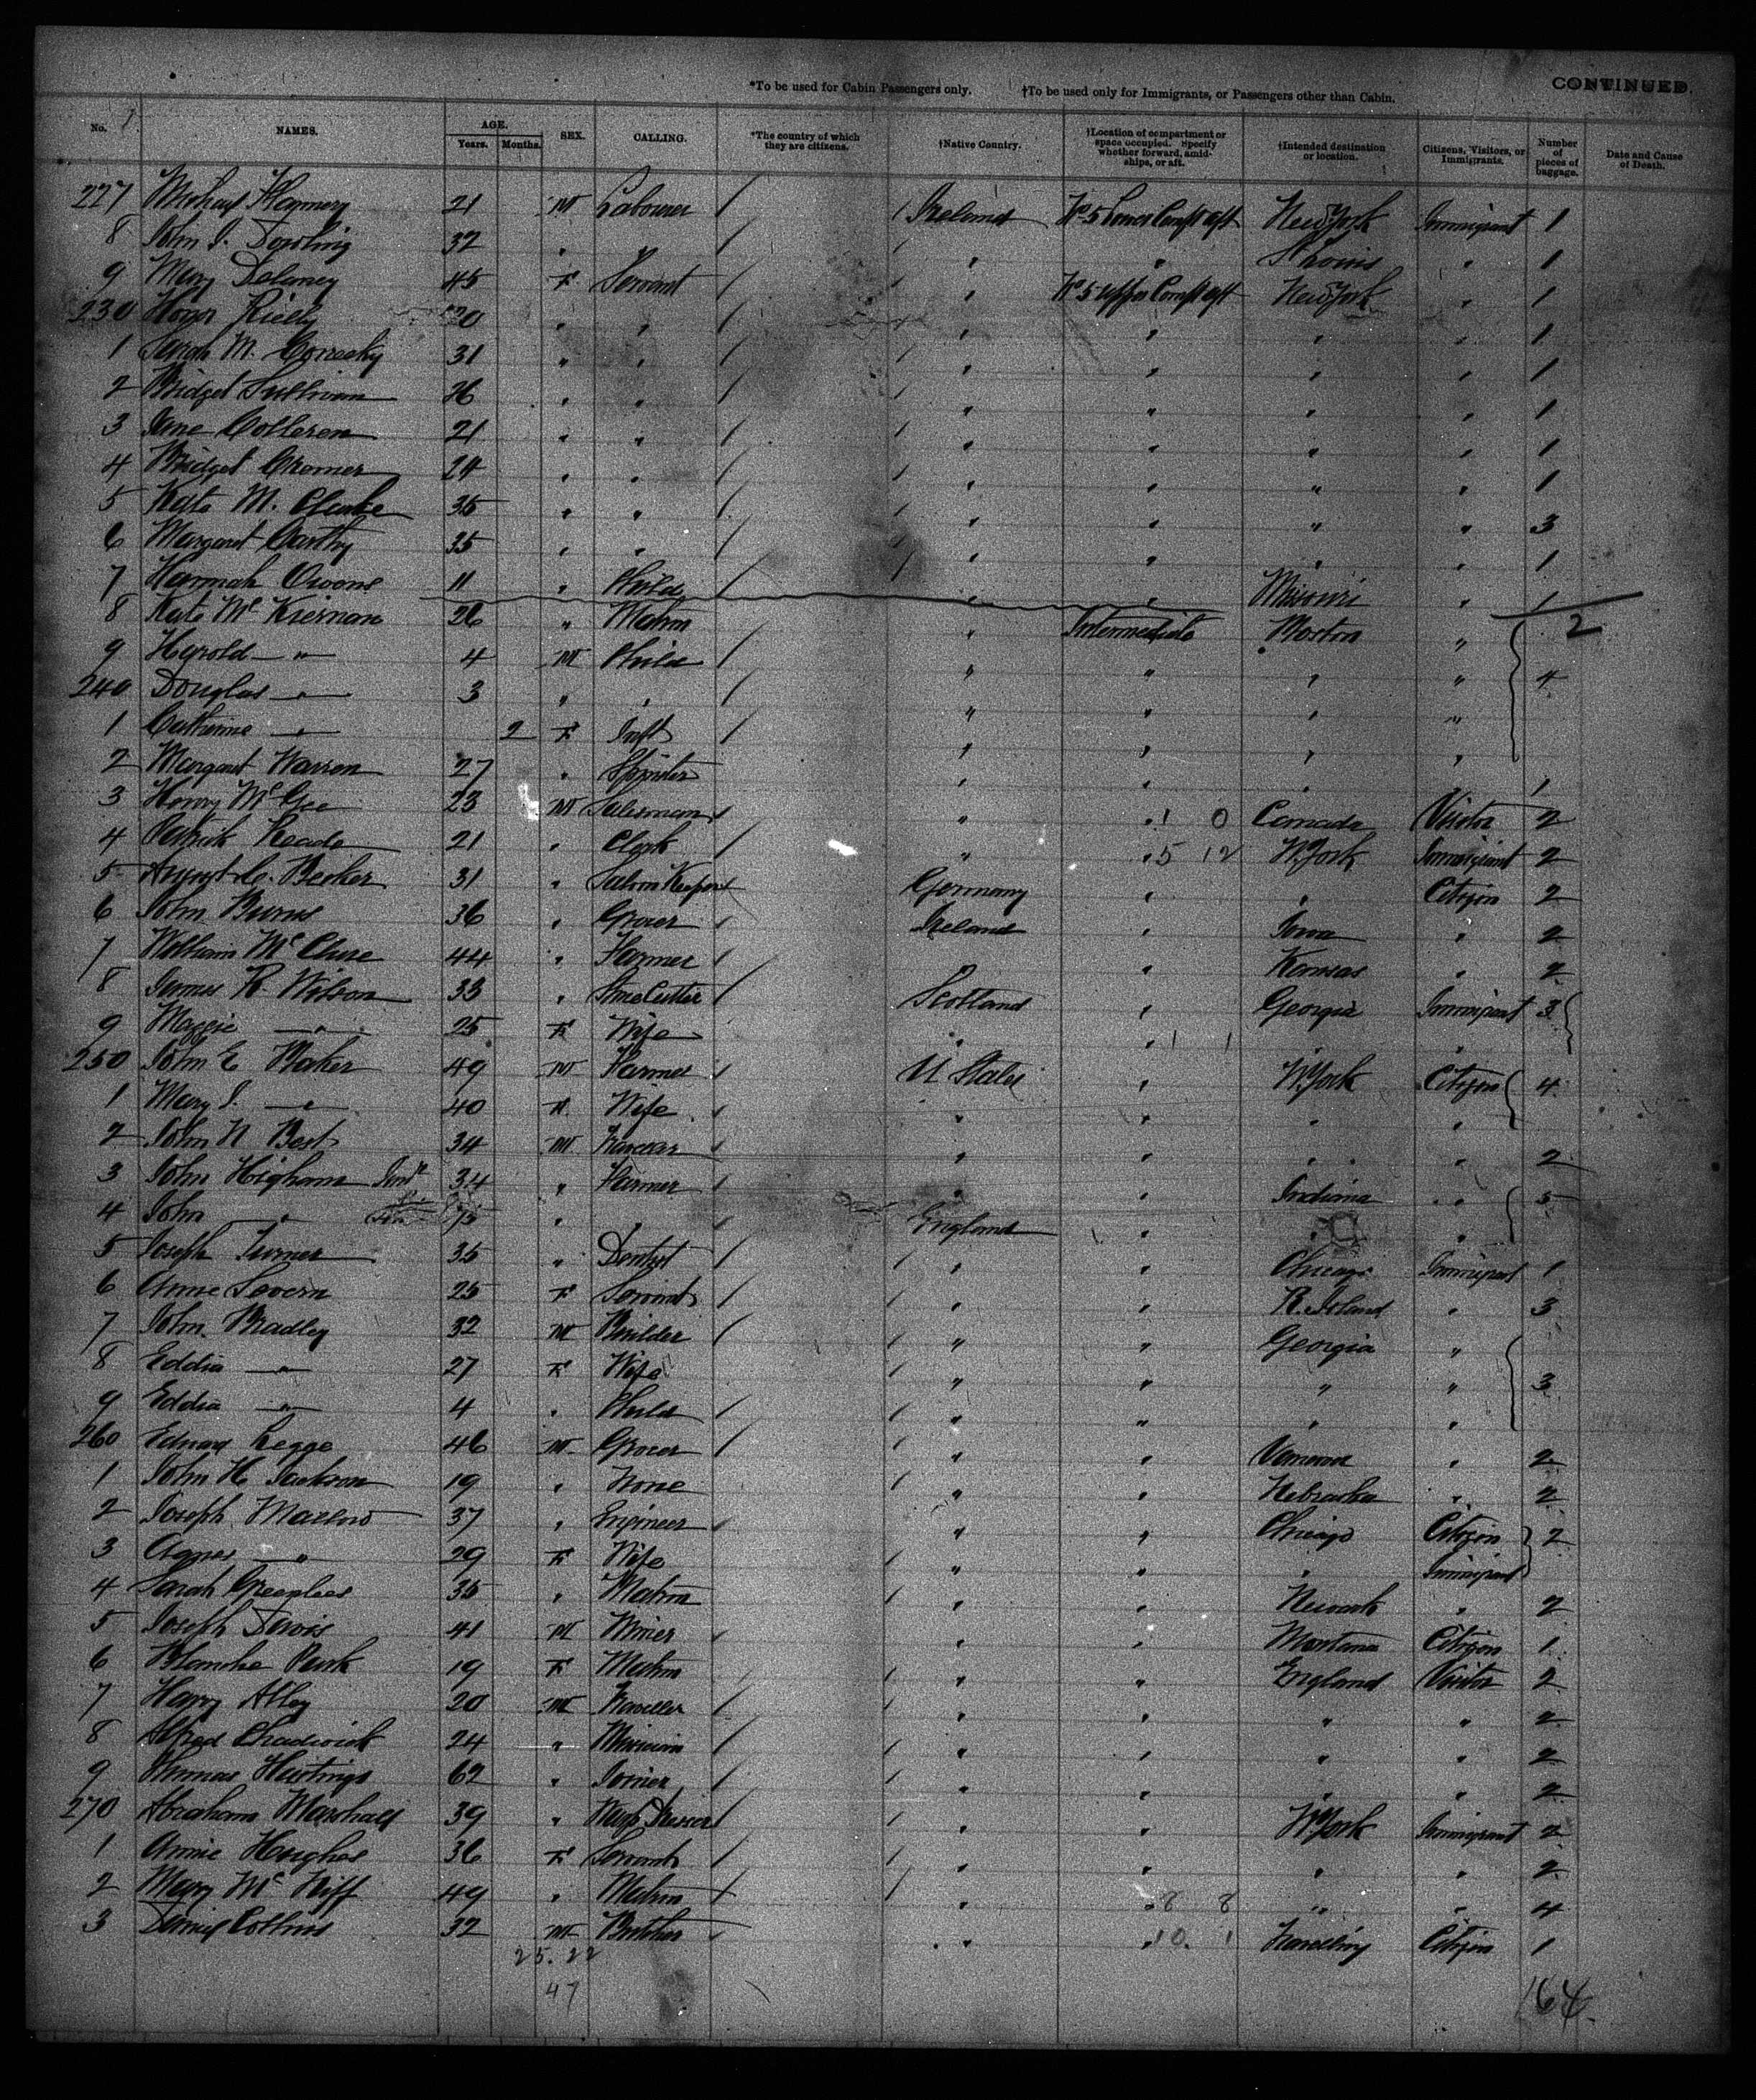 *To be used for Cabin Passengers only. †To be used only for Immigrants, or Passengers other than Cabin. CONTINUED.
No. NAMES. AGE. Years. Months. SEX. CALLING. *The country of which they are citizens. †Native Country. †Location of compartment or space occupied. Specify whether forward, amidships, or aft. †Intended destination or location. Citizens, Visitors, or Immigrants. Number of pieces of baggage. Date and Cause of Death.
227 Michael Flannery 21 M Labourer Ireland No 5 Lower Compt aft New York Immigrant 1
8 John J. Dowling 32 " " " St Louis " 1
9 Mary Delaney 45 F Servant " No 5 upper Compt aft New York " 1
230 Honor Rielly 20 " " " " " " 1
1 Sarah M. 31 " " " " " " 1
2 Bridget Sullivan 26 " " " " " " 1
3 Jane Colleren 21 " " " " " " 1
4 Bridget Cromer 24 " " " " " " 1
5 Kate M. Clarke 35 " " " " " " 3
6 Margaret Carthy 35 " " " " " " 1
7 Hannah Owens 11 " Child " " Missouri " 1
8 Kate Mc Kiernan 26 " Matron " Intermediate Boston " 2
9 Harold " 4 M Child " " " " 4
240 Douglas " 3 " " " " " "
1 Catherine " 2 F Inft " " " "
2 Margaret Warren 27 " Spinster " " " " 1
3 Henry McGee 23 M Salesman " " 1 0 Canada Visitor 2
4 Patrick Reade 21 " Clerk " " 5 12 N. York Immigrant 2
5 August C. Becker 31 " Saloon Keeper Germany " " Citizen 2
6 John Burns 36 " Grocer Ireland " Iowa " 2
7 William McClure 44 " Farmer " Kansas " 2
8 James R. Wilson 33 " Scotland " Georgia Immigrant 3
9 Maggie " 25 F Wife " " 1 1 " "
250 John E Baker 49 M Farmer U States " N. York Citizen 4
1 Mary J. " 40 F Wife " " " "
2 John N Best 34 M " " " " 2
3 John Higham 34 " Farmer " " Indiana " 5
4 John " 15 " England " "
5 Joseph Turner 35 " Dentist " " Chicago Immigrant 1
6 Anne Severn 25 F Servant " " R. Island " 3
7 John Bradley 32 M Builder " " Georgia "
8 Eddia " 27 F Wife " " " " 3
9 Eddia " 4 " Child " " " "
260 Edward Legge 46 M Grocer " " " 2
1 John H. Jackson 19 " None " " Nebraska " 2
2 Joseph Marlow 37 " Engineer " " Chicago Citizen 2
3 Agnes " 29 F Wife " " " Immigrant
4 Sarah Greenlees 35 " Matron " " Newark " 2
5 Joseph Davis 41 M Miner " " Montana Citizen 1
6 Blanche Park 19 F Matron " " England Visitor 2
7 Harry Alley 20 M Traveller " " " " 2
8 Alfred Chadwick 24 " Musician " " " " 2
9 Thomas Hastings 62 " Joiner " " " " 2
270 Abraham Marshall 39 " " " N. York Immigrant 2
1 Annie Hughes 36 F Servant " " " " 2
2 Mary Mc Niff 49 " Matron " " 8 8 " " 4
3 Daniel Collins 32 M Butcher " " 10. 1 Travelling Citizen 1
25. 22
47
164